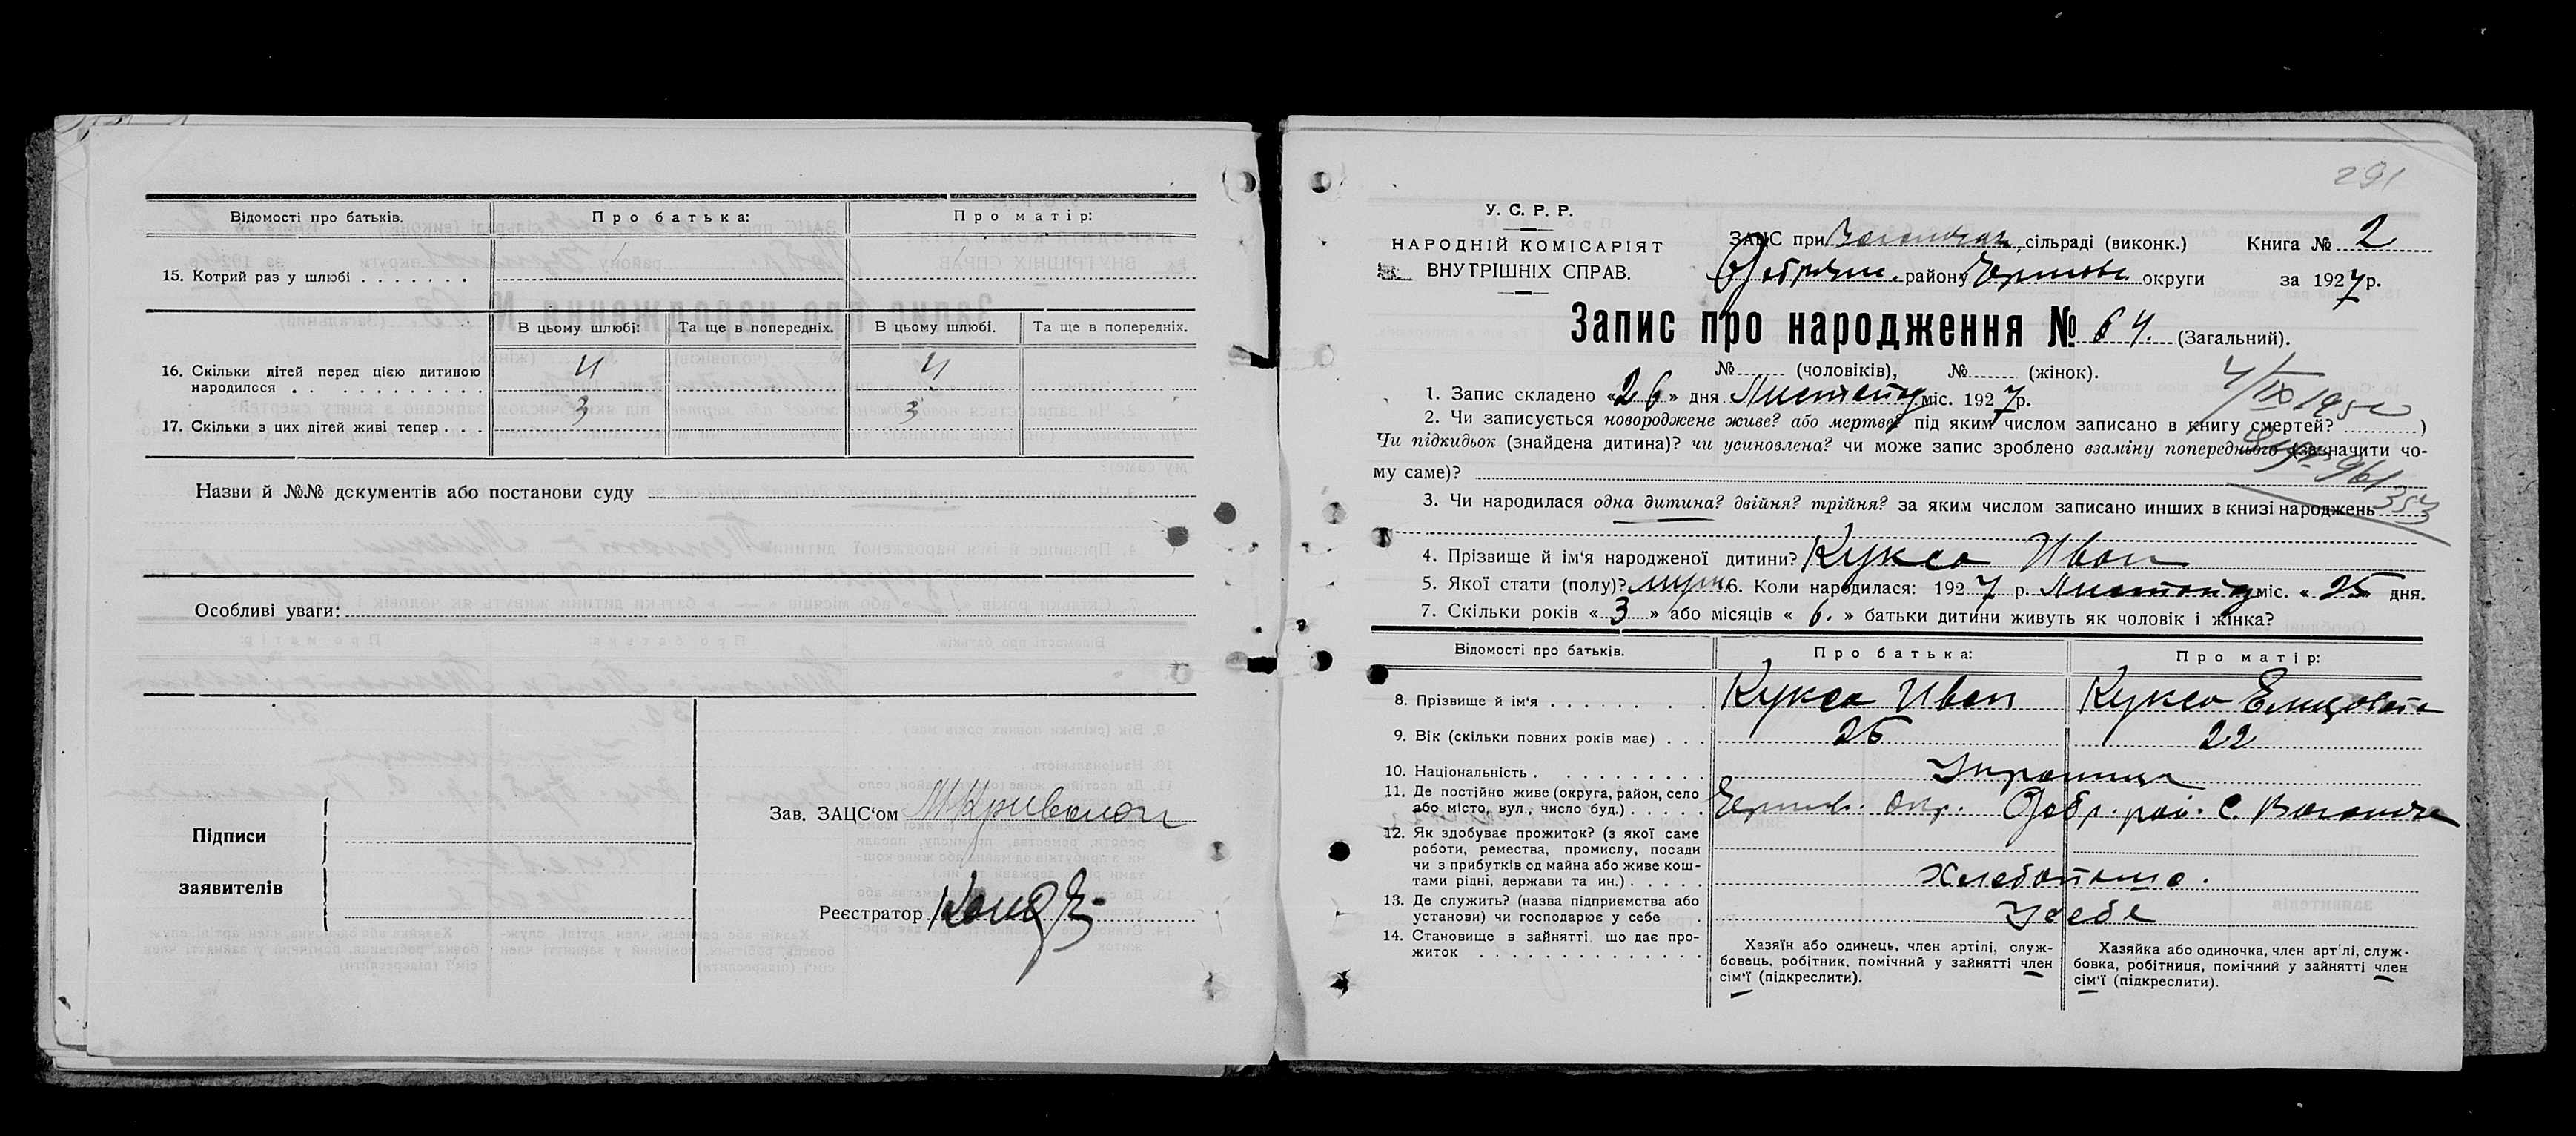 Відомості про батьків.
Про батька:
Про матір:
15. Котрий раз у шлюбі . . . . . . .
В цьому шлюбі:
Та ще в попередніх.
В цьому шлюбі.
Та ще в попередніх.
16. Скільки дітей перед цією дитиною
народилося . . . . . . . . . . . .
4
4
17. Скільки з цих дітей живі тепер . . .
3
3
Назви й №№ документів або постанови суду
Особливі уваги:
Підписи
заявителів
Зав. ЗАЦС'ом
Реєстратор
291
У. С. Р. Р.
НАРОДНІЙ КОМІСАРІЯТ
ВНУТРІШНІХ СПРАВ.
ЗАЦС при сільраді (виконк.)
Книга № 2
району округи
за 1927 р.
Запис про народження № 64. (Загальний).
№ (чоловіків), № (жінок).
1. Запис складено «26» дня Листопад міс. 1927 р.
4/IX 195
2. Чи записується новороджене живе? або мертве? під яким числом записано в книгу смертей? )
Чи підкидьок (знайдена дитина)? чи усиновлена? чи може запис зроблено взаміну попереднього (зазначити чо-
му саме)?
3. Чи народилася одна дитина? двійня? трійня? за яким числом записано инших в книзі народжень
353
4. Прізвище й ім'я народженої дитини? Кукса Иван
5. Якої стати (полу)? муж. 6. Коли народилася: 1927 р. Листопад міс. «25» дня.
7. Скільки років «3» або місяців «6.» батьки дитини живуть як чоловік і жінка?
Відомості про батьків.
Про батька:
Про матір:
8. Прізвище й ім'я . . . . . . . . .
Кукса Иван
Кукса Елизовета
9. Вік (скільки повних років має) . . .
25
22
10. Національність . . . . . . . . . .
Украинца
11. Де постійно живе (округа, район, село
або місто, вул., число буд.) . . . . .
окр. Добр. рай. с.
12. Як здобуває прожиток? (з якої саме
роботи, ремества, промислу, посади
чи з прибутків од майна або живе кош-
тами рідні, держави та ин.) . . . . .
Хлебопаш.
13. Де служить? (назва підприємства або
установи) чи господарює у себе .
У себе
14. Становище в зайнятті що дає про-
житок . . . . . . . . . . . . . .
Хазяїн або одинець, член артілі, служ-
бовець, робітник, помічний у зайнятті член
сім'ї (підкреслити).
Хазяйка або одиночка, член арт'лі, служ-
бовка, робітниця, помічний у зайнятті член
сім'ї (підкреслити).